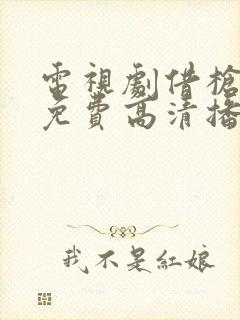 電視劇借槍
免費高清播
我不是紅娘